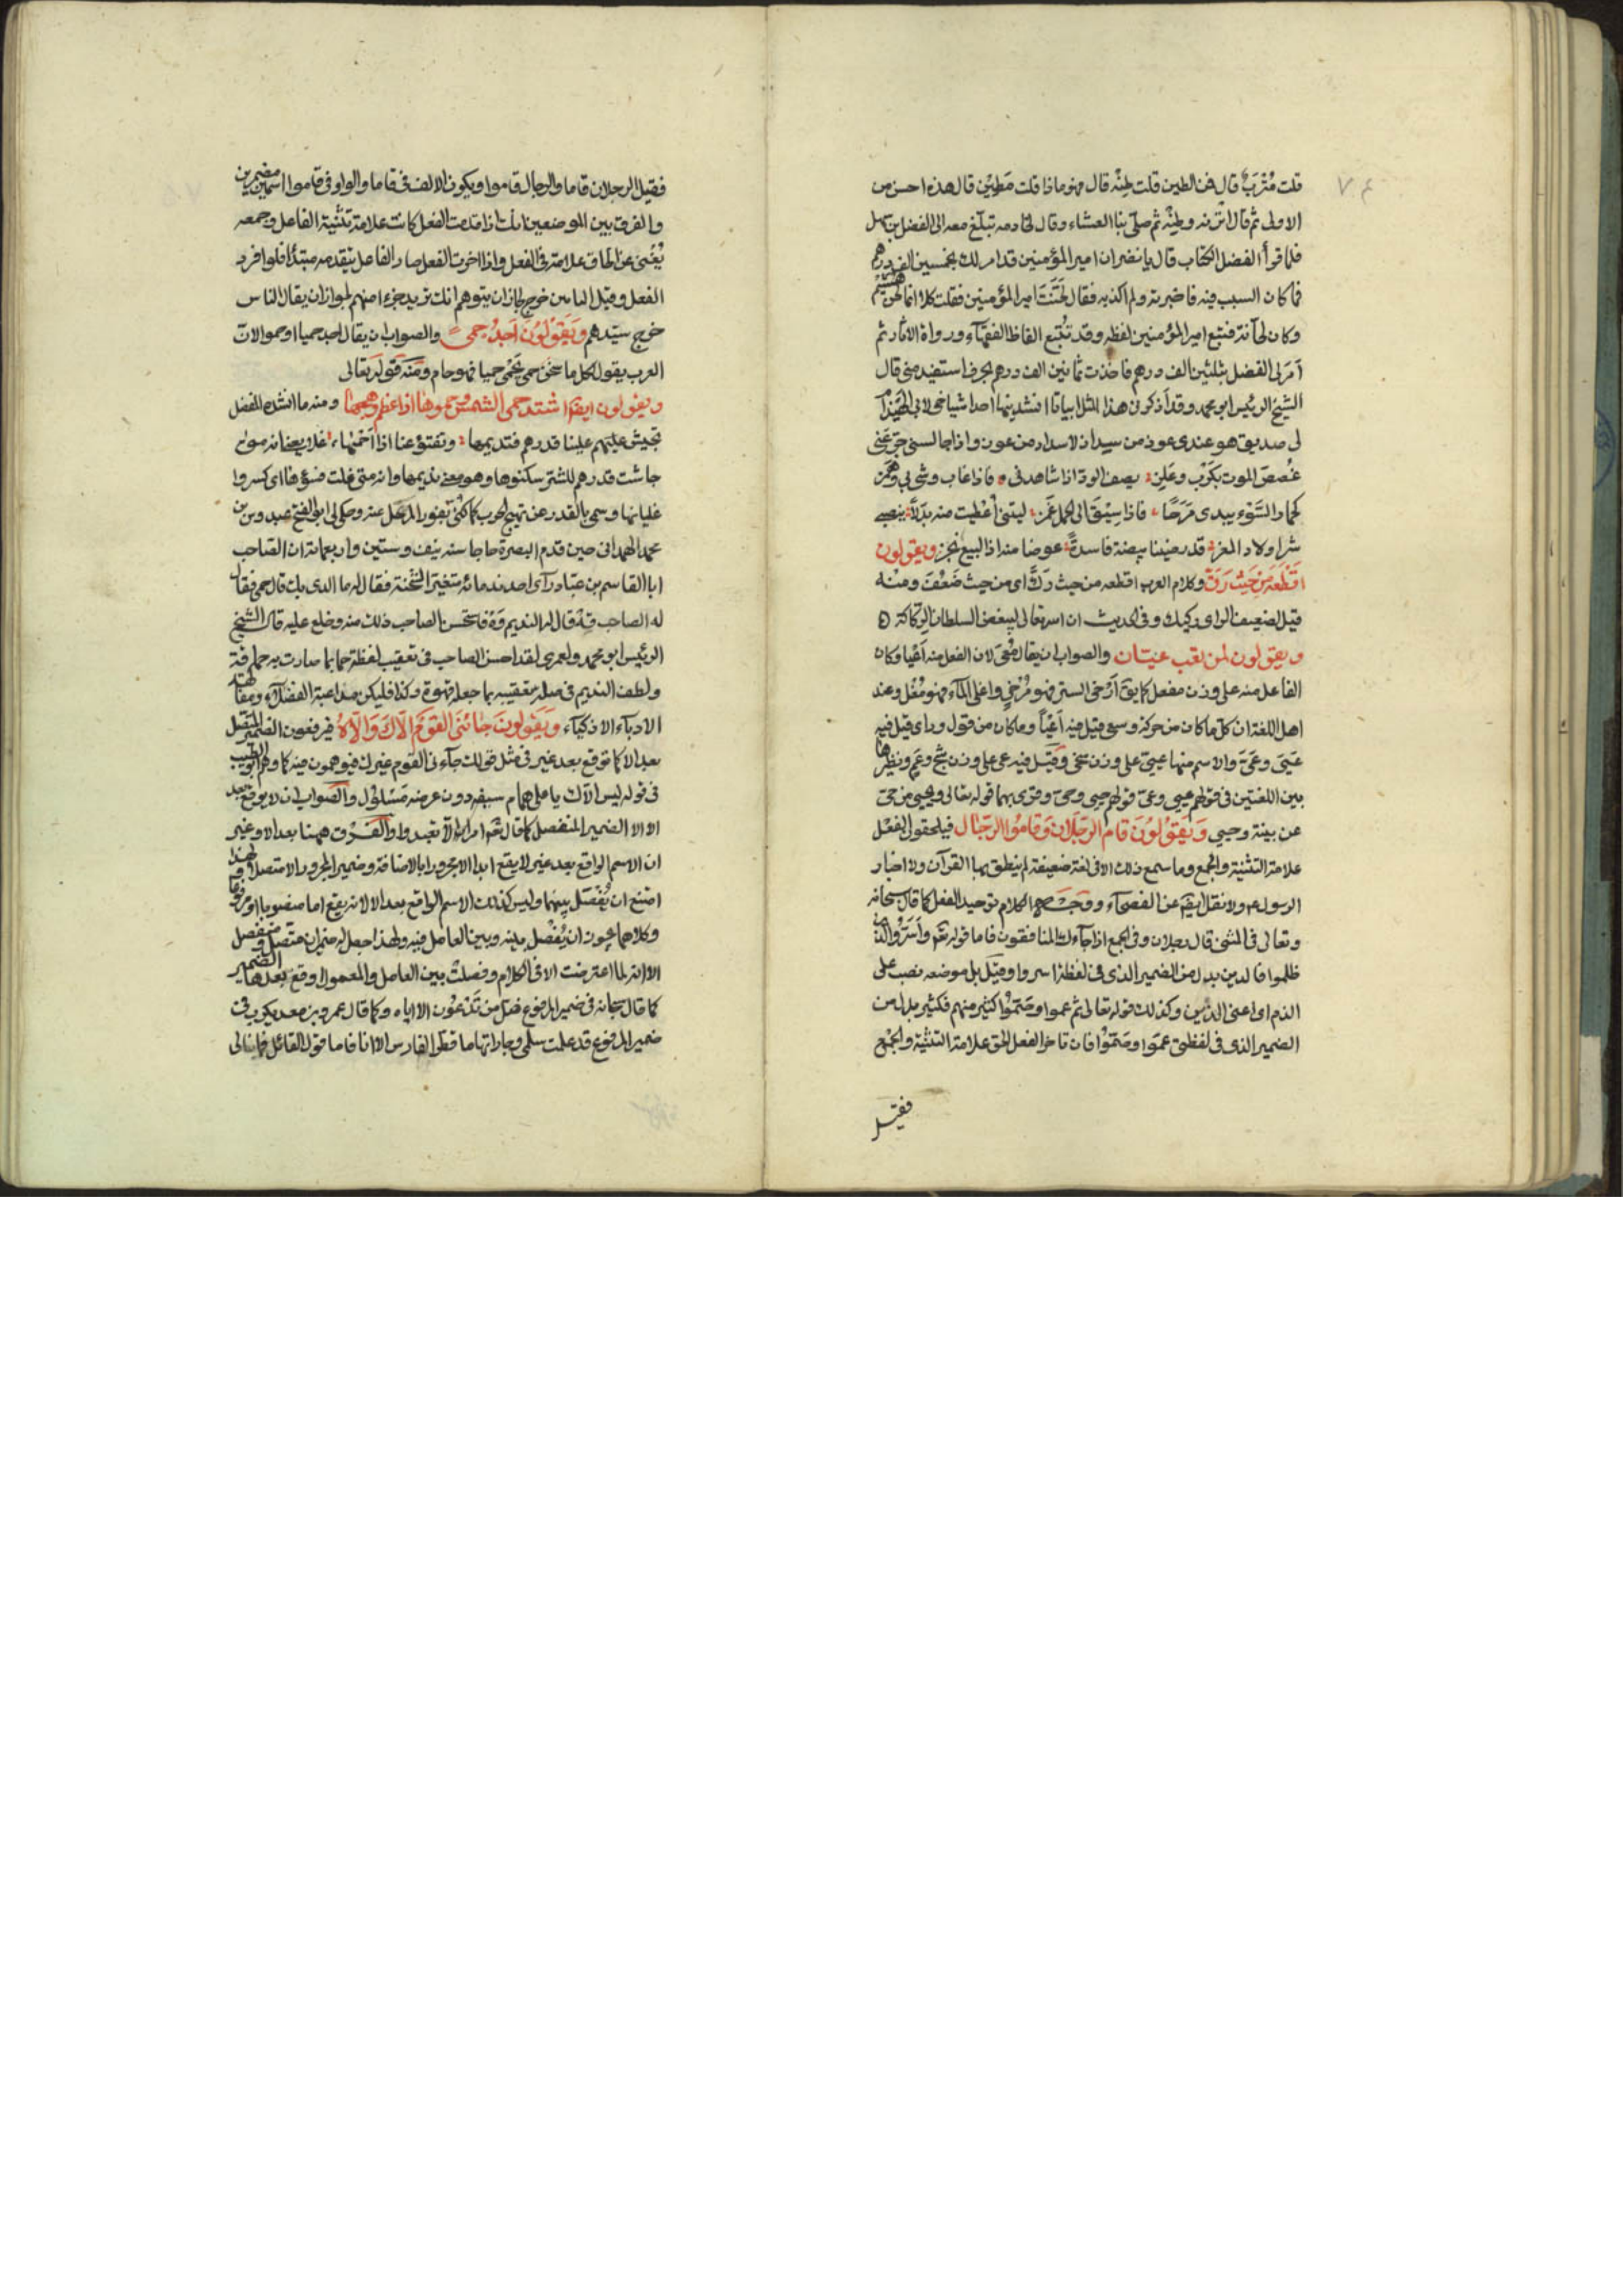 ٧٤
قلت مُتْرَبٌ قال فمن الطين قلت طِنْه قال فهو ماذا قلت مَطِيْن قال هذه احسن من
الاولى ثم قال اترنه وطِنْه ثم صلّى بنا العشاء وقال لخادمه تبلّغ معه الى الفضل بن سهل
فلما قرأ الفضل الكتاب قال يا نضر ان امير المؤمنين قد امر لك بخمسين الف درهم
فما كان السبب فيه فاخبرته ولم اكذبه فقال لَحَّنْتَ امير المؤمنين فقلت كلا انما لحن هُشَيْم
وكان لحّانة فتبع امير المؤمنين لفظه وقد تُتّبع الفاظ الفقهآء ورواة الاثار ثم
اَمَر لى الفضل بثلثين الف درهم فاخذت ثمانين الف درهم بحرف استفيد منى قال
الشيخ الرئيس ابو محمد وقد اذكرنى هذا المثل ابياتا انشدنيها احد اشياخى لابى الهَيْذام
لى صديق هو عندى عوز من سداد لا سداد من عوز واذا جالسنى جرّعنى
غُصصَ الموت بكَرْب وعَلِز يصف الود اذا شاهدنى فاذا غاب وشى بى وهَمَز
كحمار السَّوْء يبدى مَرَحًا فاذا سِيْقَ الى الحمل غَمَز ليتنى أعْطيت منه بدلًا بنصيبى
شرا ولاد المعز قد رضينا بيضة فاسدةً عوضا منه اذا البيع نجز ويقولون
اقْطَعَه مِنْ حَيْث رَقّ وكلام العرب اقطعه من حيث رَكَّ اى من حيث ضَعُفَ ومنه
قيل لضعيف الراى ركيك وفى الحديث ان الله تعالى ليبغض السلطان الرّكاكة ٥
ويقولون لمن تعب عيّان والصواب ان يقال مُعْىٍ لان الفعل منه اَعْيا وكان
الفاعل منه على وزن مفعل كما يق اَرْخى الستر فهو مُرْخٍ واغلى المآء فهو مُغْلٍ وعند
اهل اللغة ان كل ما كان من حركة وسعى قيل فيه اَعْيَا وما كان من قول وراى قيل فيه
عَيِىَ وعَىَّ والاسم منها عيىّ على وزن سَخىّ وقيل فيه عىٌ على وزن شَجٍ وعَمٍ ونظيرها
بين اللغتين فى قولهم عيى وعىّ قولهم حيى وحىّ وقرى بهما قوله تعالى ويحيى من حىّ
عن بينة وحيى وَيَقُولُوْنَ قَامَ الرَّجُلَانِ وَقَامُوا الرِّجَال فيلحقون الفعْل
علامة التثنية والجمع وما سمع ذلك الا فى لغة ضعيفة لم ينطق بها القرآن ولا اخبار
الرسول عم ولا نقل ايضا عن الفصحآء ووجه الكلام توحيد الفعل كما قال سبحانه
وتعالى فى المثنى قال رجلان وفى الجمع اذا جآءك المنافقون فاما قوله تعم واَسَرُّوا الذين
ظلموا فالذين بدل من الضمير الذى فى لفظة اسروا وقيل بل موضعه نصب على
الذم اى اعنى الذين وكذلك قوله تعالى ثم عموا وصَمّوا كثير منهم فكثير بدل من
الضمير الذى فى لفظتى عمَوا وصَمّوا فان تاخر الفعل الحق علامة التثنية والجَمْع
فقيل
فقيل الرجلان قاما والرجال قاموا ويكون الالف فى قاما والواو فى قاموا اسمين مضمرين
والفرق بين الموضعين انك اذا قدمت الفعل كانت علامة تثنية الفاعل وجمعه
يُغْنى عن الحاق علامة فى الفعل واذا اخرت الفعل صار الفاعل بتقدمه مبتدأ فلو افرد
الفعل وقيل الناس خرج لجاز ان يتوهم انك تريد جزءا منهم لجواز ان يقال الناس
خرج سيّدهم وَيَقُوْلُوْنَ اَجِدُ حمى والصواب ان يقال اجد حميا او حموا لان
العرب يقول لكل ما سَخن حمى يَحْمى حميا فهو حام ومنه قوله تعالى
ويقولون ايضا اشتد حمى الشمس وحموها اذا عظم وهجها ومنه ما انشده المفضل
تجيش عليهم علينا قدرهم فنديمها ونفتؤ عنا اذا احَمْيُها غلا يعنى انه متى
جاشت قدرهم للشر سكنوها وهو معنى نديمها وانه متى غلت فثؤها اى كسروا
غليانها وسمى بالقدر عن تهيج الحرب كما كُنّى بفور المرجل عنه وحكى لى ابو الفتح عبدوس بن
محمد الهمدانى حين قدم البصرة حاجا سنه نيف وستين واربعمائة ان الصّاحب
ابا القاسم بن عبّاد رآى احد ندمائه متغير السّحْنة فقال له ما الذى بك قال حمى فقال
له الصاحب قِهْ فقال له النديم وَهْ فاستحسن الصاحب ذلك منه وخلع عليه قال الشيخ
الرئيس ابو محمد ولعمرى لقد احسن الصاحب فى تعقيب لفظة حما بما صارت به حماقة
ولطف النديم فى صلة تعقيبه بما جعله قهوة وكذا فليكن مداعبة الفضلآء ومفاكهة
الادبآء الاذكيآء وَيَقُولونَ جَائَنى القوْمُ اِلّاكَ وَاِلّاهُ فيوقعون الضمير المتصل
بعد الا كما توقع بعد غير فى مثل قولك جآءنى القوم غيرك فيوهمون فيه كما وهم ابو الطيب
فى قوله ليس الاّك يا على همام سيفه دون عرضه مَسْلول والصواب ان لا يوقع بعد
الا الا الضمير المنفصل كما قال تعم امر الا تعبدوا والفَرْق ههنا بعد الا وغير
ان الاسم الواقع بعد غير لا يقع ابدا الا مجرورا بالاضافة وضمير المجرور الا متصلا ولهذا
امتنع ان يُفْصَل بينهما وليس كذلك الاسم الواقع بعد الا لانه يقع اما منصوبا او مرفوعا
وكلاهما يجوز ان يُفْصل بينه وبين العامل فيه ولهذا جعل له ضميران متّصل ومنفصل
الا انه لما اعترضت الا فى الكلام وفصلتْ بين العامل والمعمول اوقع بعدها الضمير
كما قال سبحانه فى ضمير المرفوع ضل من تَدْعُوْن الا اياه وكما قال عمرو بن معد يكرب فى
ضمير المرفوع قد علمت سلمى وجاراتها ما قطّر الفارس الا انا فاما قول القائل فما نبالى